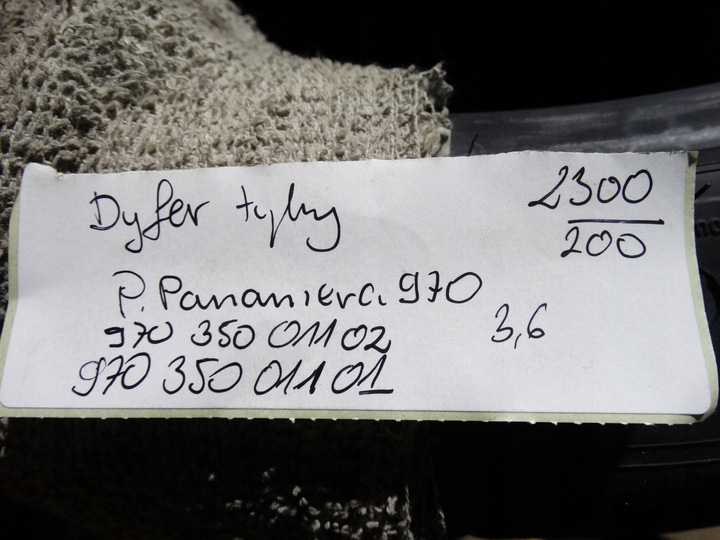 Dyfer tylny
2300
200
P. Pananiera 970
970 350 011 02
3,6
970 350 011 01